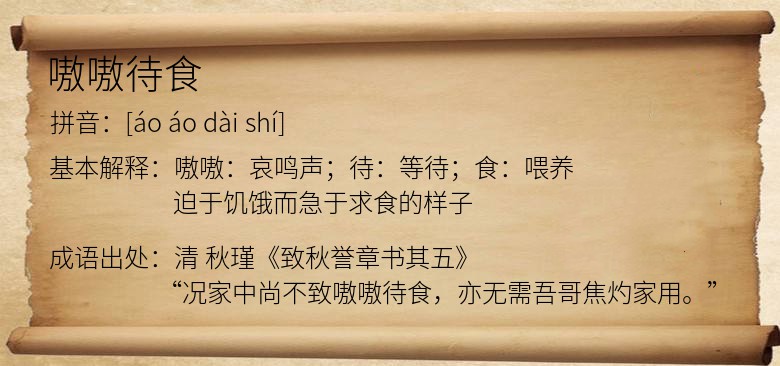 嗷嗷待食
拼音：[áo áo dài shí]
基本解释：嗷嗷：哀鸣声；待：等待；食：喂养
迫于饥饿而急于求食的样子
成语出处：清 秋瑾《致秋誉章书其五》
“况家中尚不致嗷嗷待食，亦无需吾哥焦灼家用。”